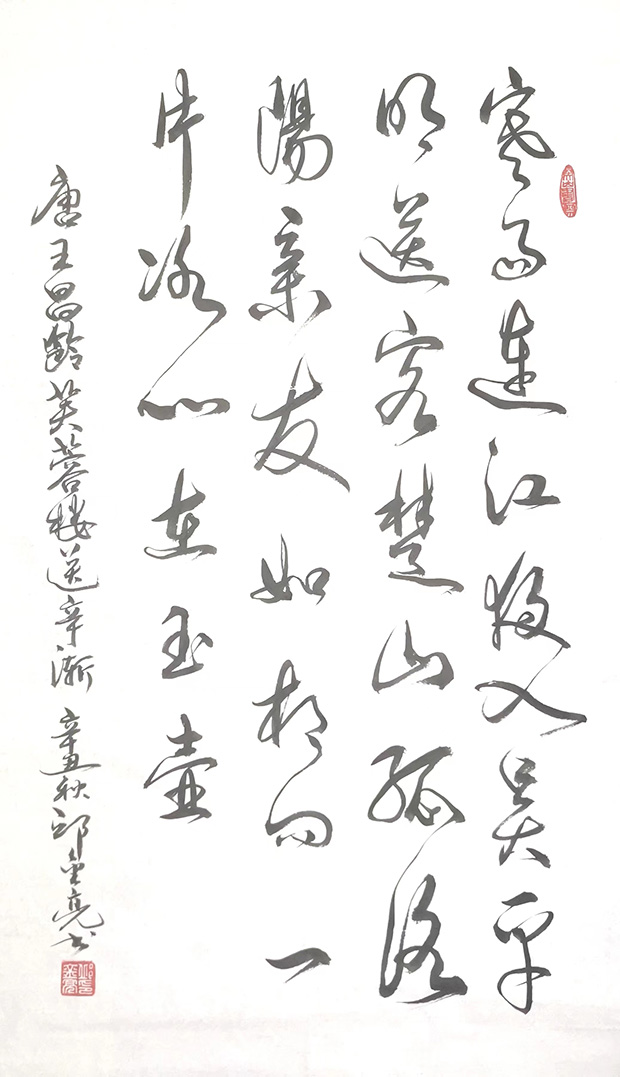 寒雨连江夜入吴平
明送客楚山孤洛
陽亲友如相问一
片冰心在玉壶
唐王昌齡芙蓉楼送辛渐 辛丑秋邱金亮书